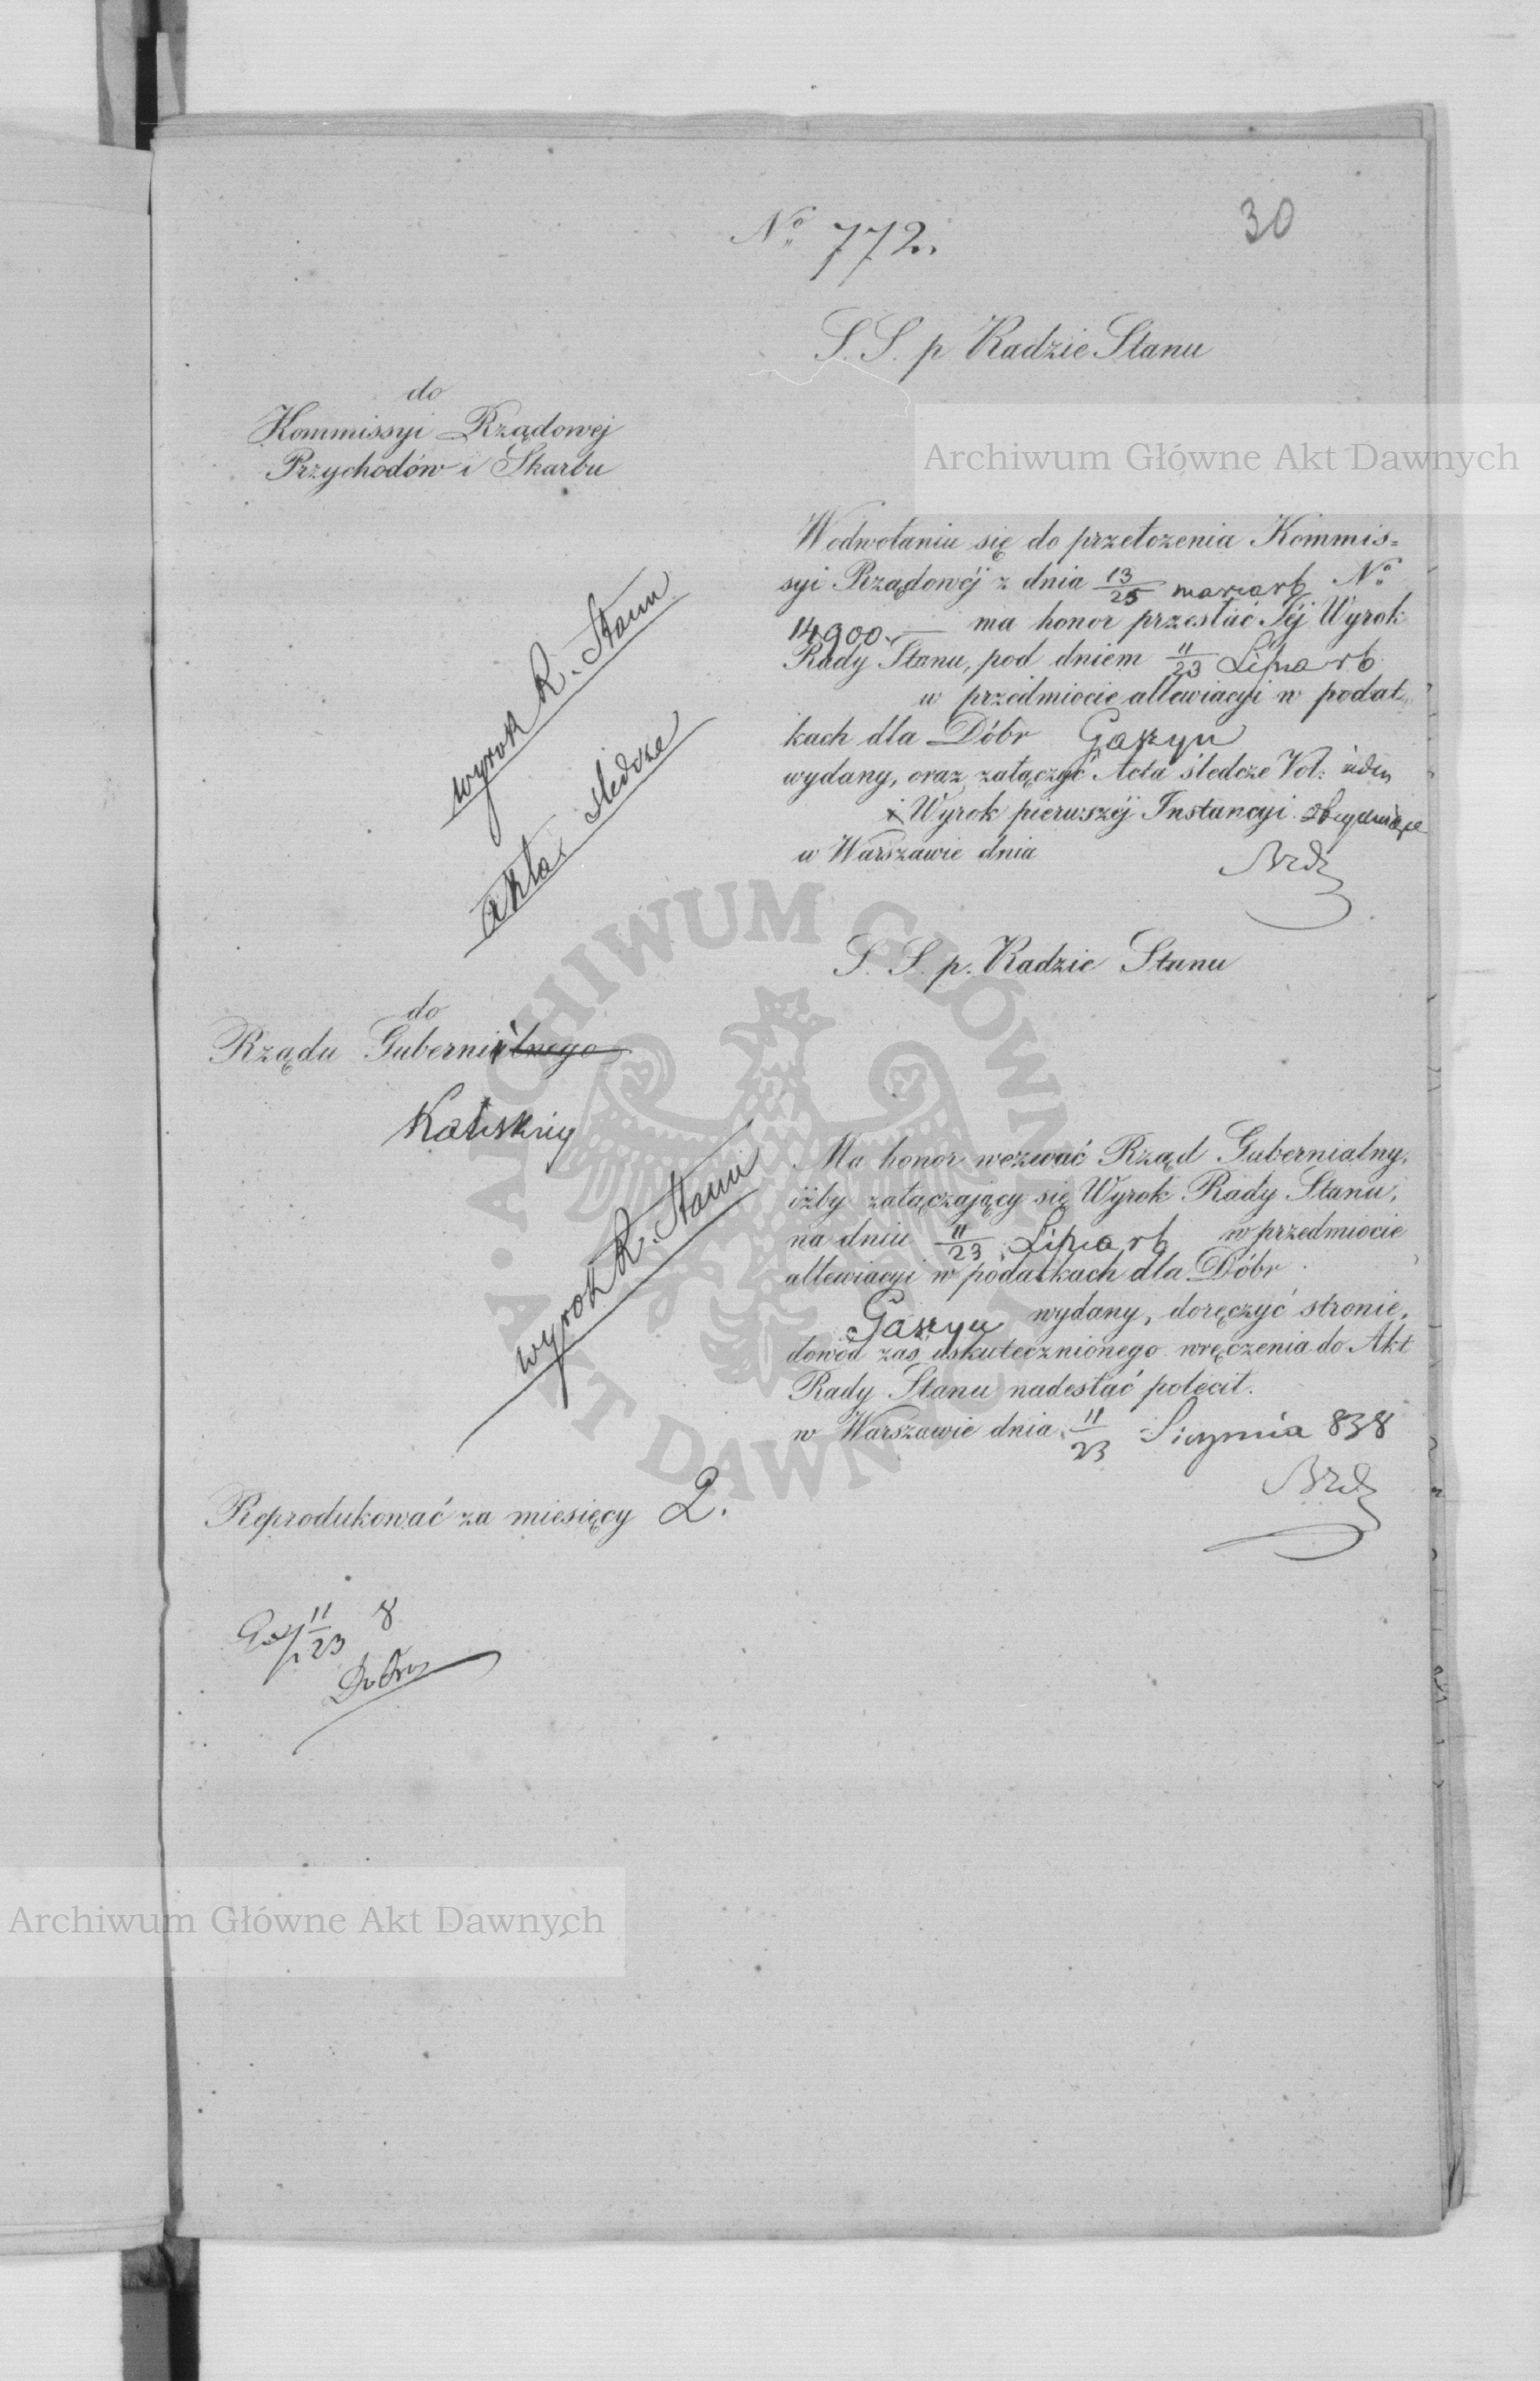 30
Nº 772.
S. S. p Radzie Stanu
do
Kommissyi Rządowej
Przychodów i Skarbu
W odwołaniu się do przełożenia Kommis=
syi Rządowéj z dnia 13/25 marca rb Nº
14900. — ma honor przesłać Jéj Wyrok
Rady Stanu, pod dniem 11/23 Lipca rb
w przedmiocie allewiacyi w podat=
kach dla Dóbr Gaszyn
wydany, oraz załączyć Acta śledcze Vol: jeden
i Wyrok pierwszéj Instancyi
w Warszawie dnia
wyrok R. Stanu
akta śledcze
S. S. p. Radzie Stanu
do
Rządu Gubernialnego
Kaliskiey
Ma honor wezwać Rząd Gubernialny,
iżby załączający się Wyrok Rady Stanu,
na dniu 11/23 Lipca rb w przedmiocie
allewiacyi w podatkach dla Dóbr
Gaszyn wydany, doręczyć stronie,
dowód zaś uskutecznionego wręczenia do Akt
Rady Stanu nadesłać polecił.
w Warszawie dnia 11/23 Sierpnia 838
wyrok R. Stanu
Reprodukować za miesięcy 2.
11/23 8
Archiwum Główne Akt Dawnych
ARCHIWUM GŁÓWNE AKT DAWNYCH
Archiwum Główne Akt Dawnych